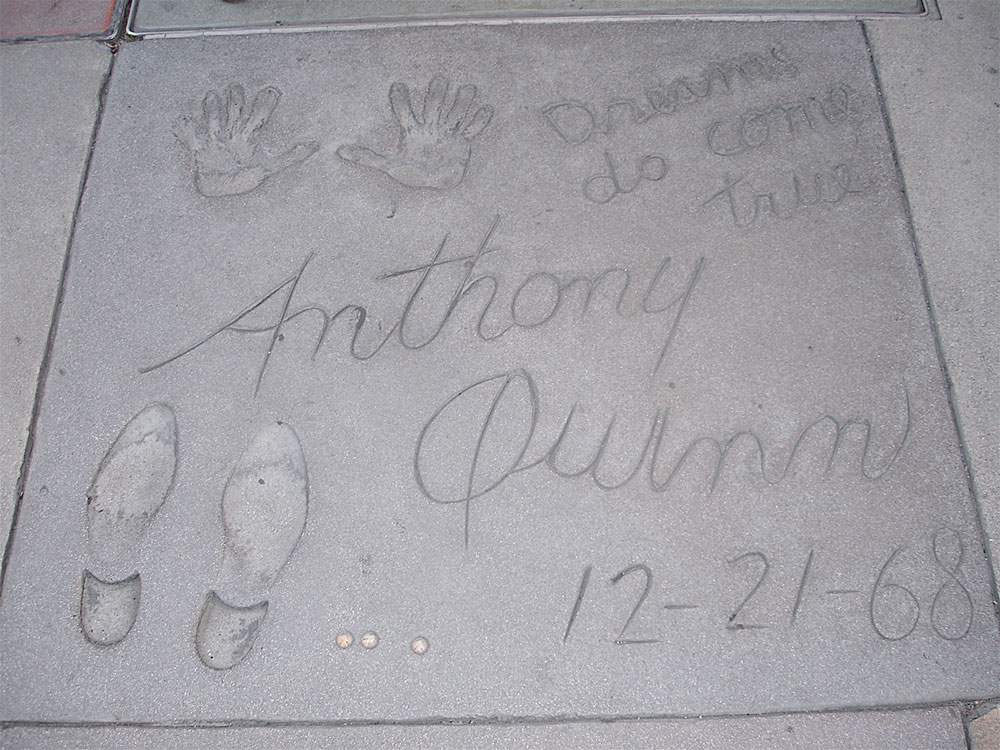 Dreams
do come
true
Anthony
Quinn
12-21-68